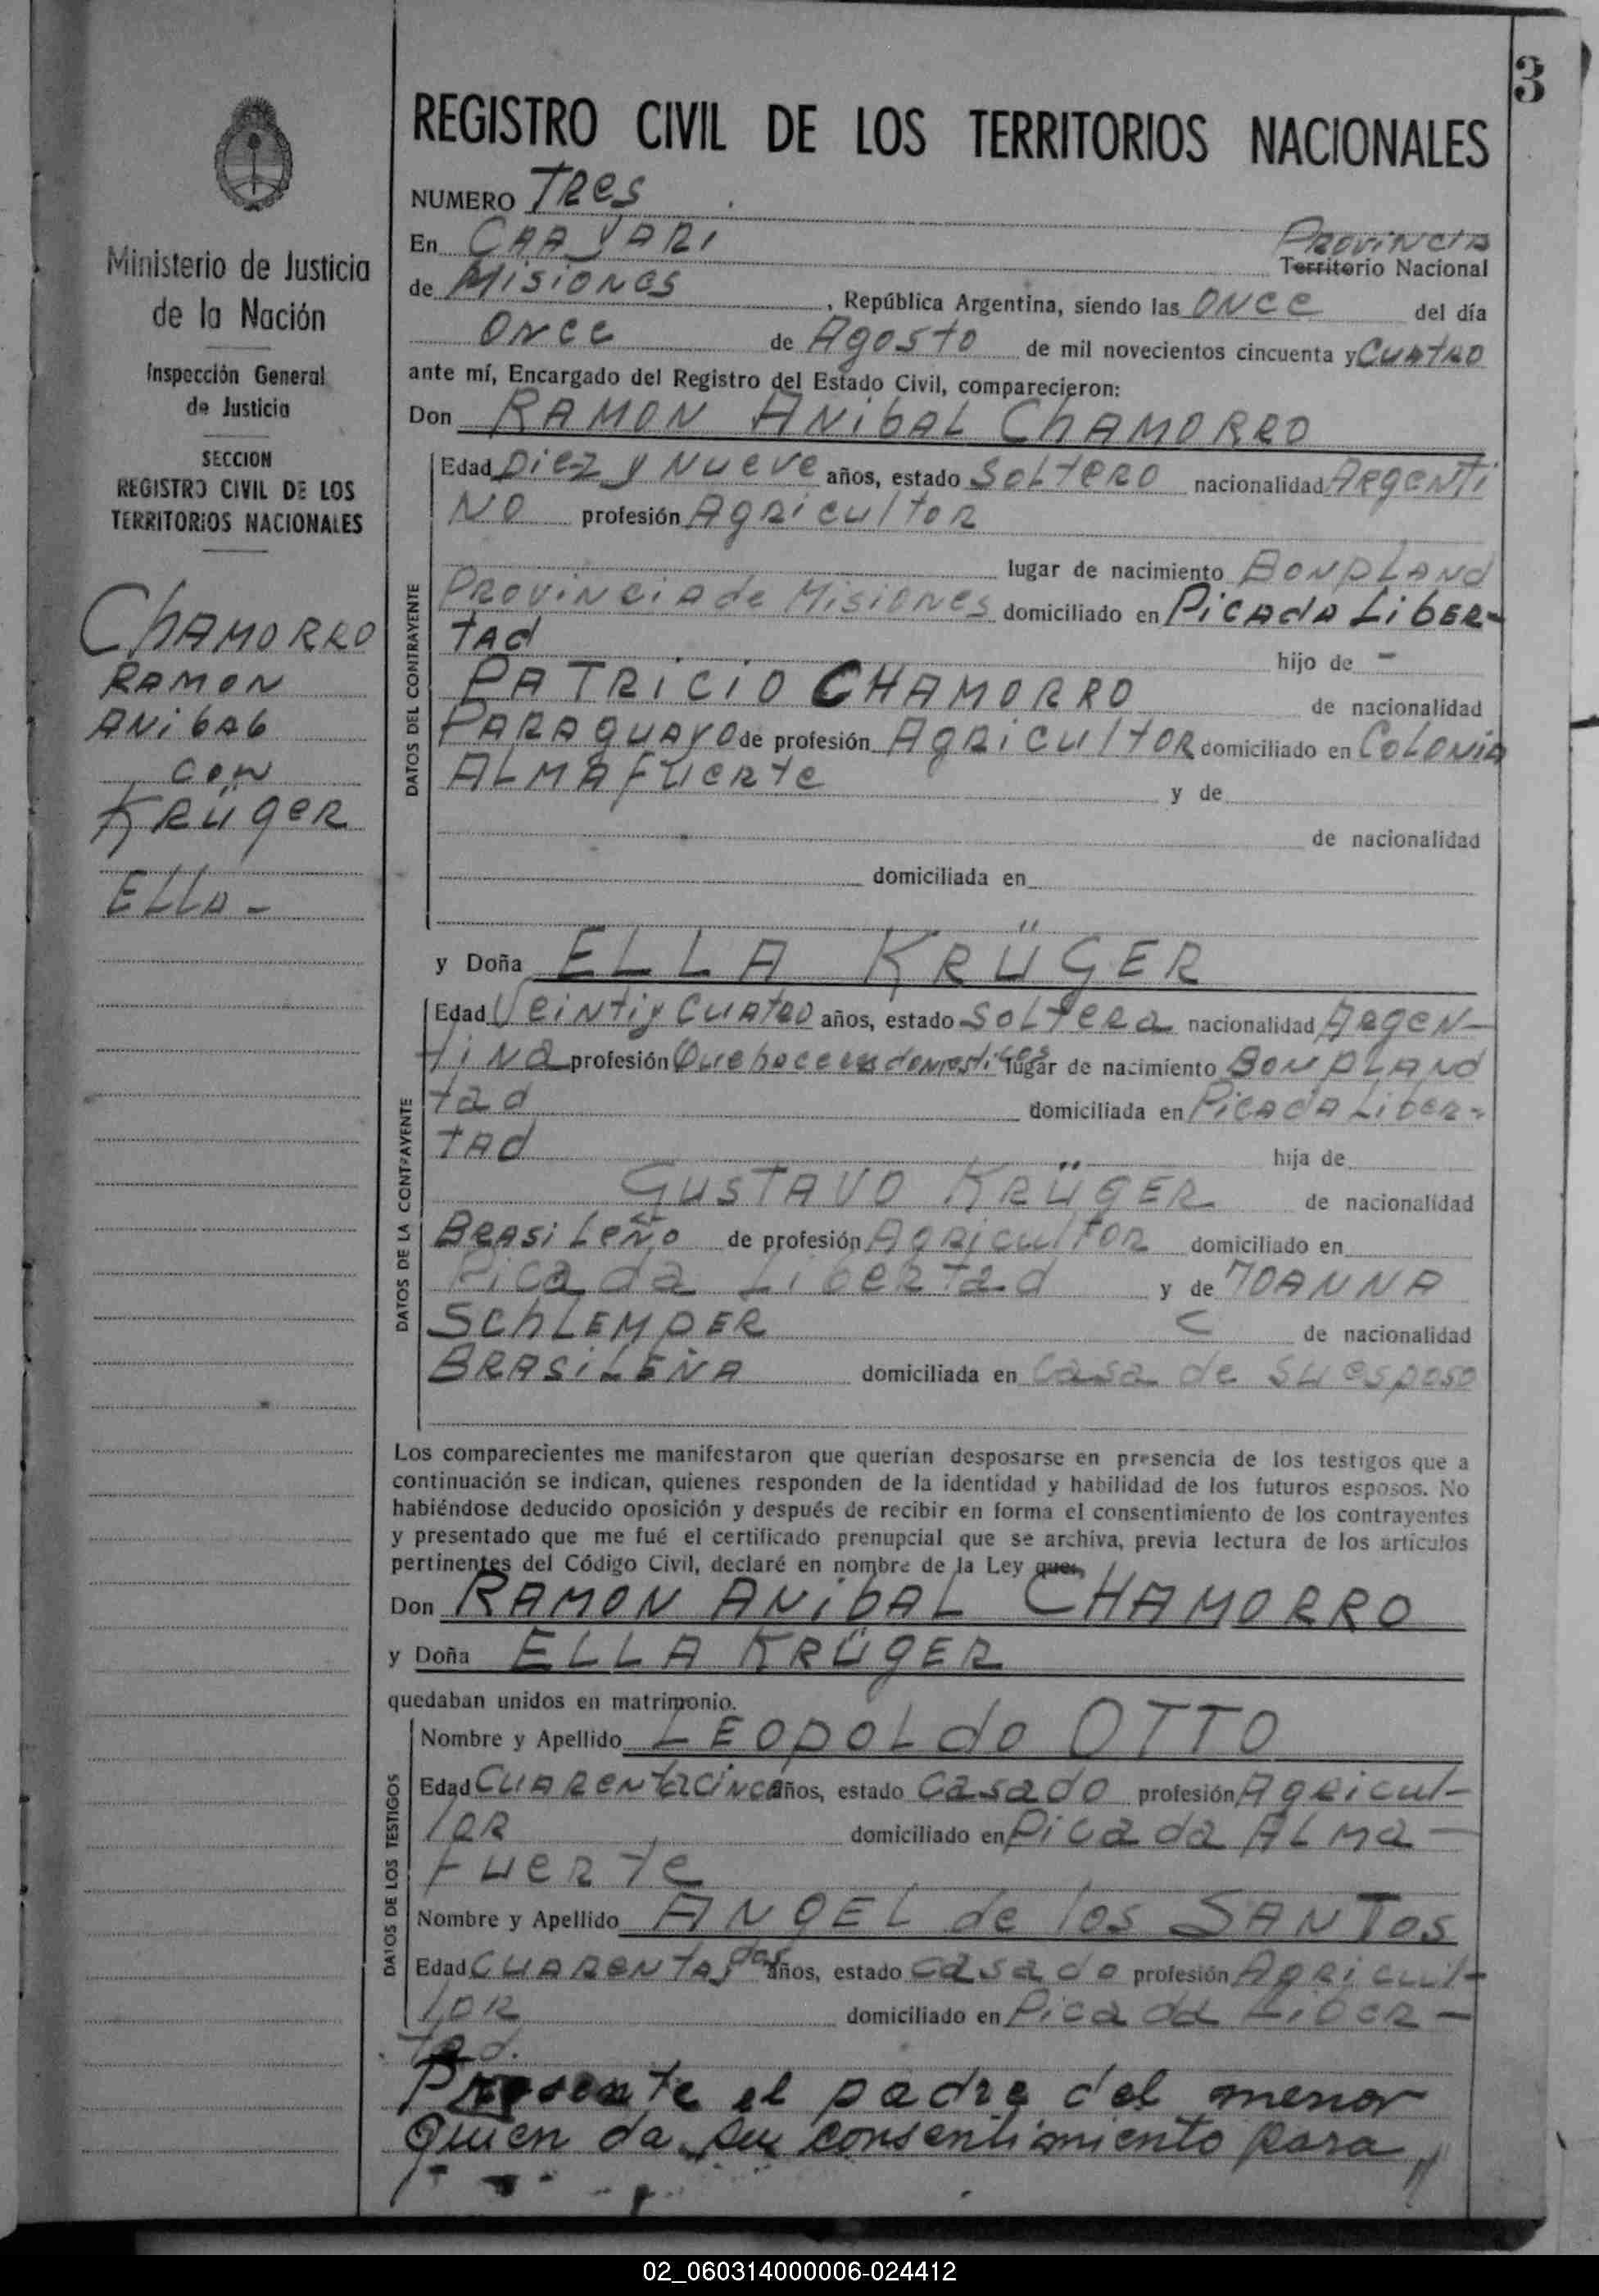 3
REGISTRO CIVIL DE LOS TERRITORIOS NACIONALES
Ministerio de Justicia
de la Nación
Inspección General
de Justicia
SECCION
REGISTRO CIVIL DE LOS
TERRITORIOS NACIONALES
CHAMORRO
RAMON
ANibAb
CON
KRÜgER
ELLA-
NUMERO TRes
En CAAYARI PROViNCIA
Territorio Nacional
de MiSiONes, República Argentina, siendo las ONCe del día
ONCe de AgOsto de mil novecientos cincuenta y CUAtRO
ante mí, Encargado del Registro del Estado Civil, comparecieron:
Don RAMON ANibAL ChAMORRO
DATOS DEL CONTRAYENTE
Edad Diez y Nueve años, estado SOLTERO nacionalidad ARgeNTi
NO profesión AgRicultOR
lugar de nacimiento BONpLANd
PROViNciA de MisiONes domiciliado en PiCAdA LibER-
TAd hijo de -
PATRiCiO CHAMORRO de nacionalidad
PARAguAyO de profesión AgRicultOR domiciliado en COLONiA
ALMAFueRte y de
de nacionalidad
domiciliada en
y Doña ELLA KRÜGER
DATOS DE LA CONTRAYENTE
Edad Veintiy CUAtRO años, estado SOLteRa nacionalidad ARgeN-
tiNa profesión Quehaceres domesticos lugar de nacimiento BONpLANd
tad domiciliada en PiCAdA Liber-
TAd hija de
GUSTAVO KRÜGER de nacionalidad
BRASiLeÑo de profesión AgRicultOR domiciliado en
Picada LibeRtad y de JOANNA
SChLEMPER de nacionalidad
BRASiLEÑA domiciliada en Casa de su esposo
Los comparecientes me manifestaron que querían desposarse en presencia de los testigos que a
continuación se indican, quienes responden de la identidad y habilidad de los futuros esposos. No
habiéndose deducido oposición y después de recibir en forma el consentimiento de los contrayentes
y presentado que me fué el certificado prenupcial que se archiva, previa lectura de los artículos
pertinentes del Código Civil, declaré en nombre de la Ley que,
Don RAMON ANibAL CHAMORRO
y Doña ELLA KRÜgER
quedaban unidos en matrimonio.
DATOS DE LOS TESTIGOS
Nombre y Apellido LEOPOLdo OTTO
Edad CUAReNtaciNco años, estado Casado profesión AgRicul-
tOR domiciliado en Picada ALMa-
FueRte
Nombre y Apellido ANgEL de los SANTos
Edad CUARENTAy dos años, estado Casado profesión AgRicul-
tOR domiciliado en Picada LibeR-
tad.
Presente el padre del menor
quien da su consentimiento para
02_060314000006-024412